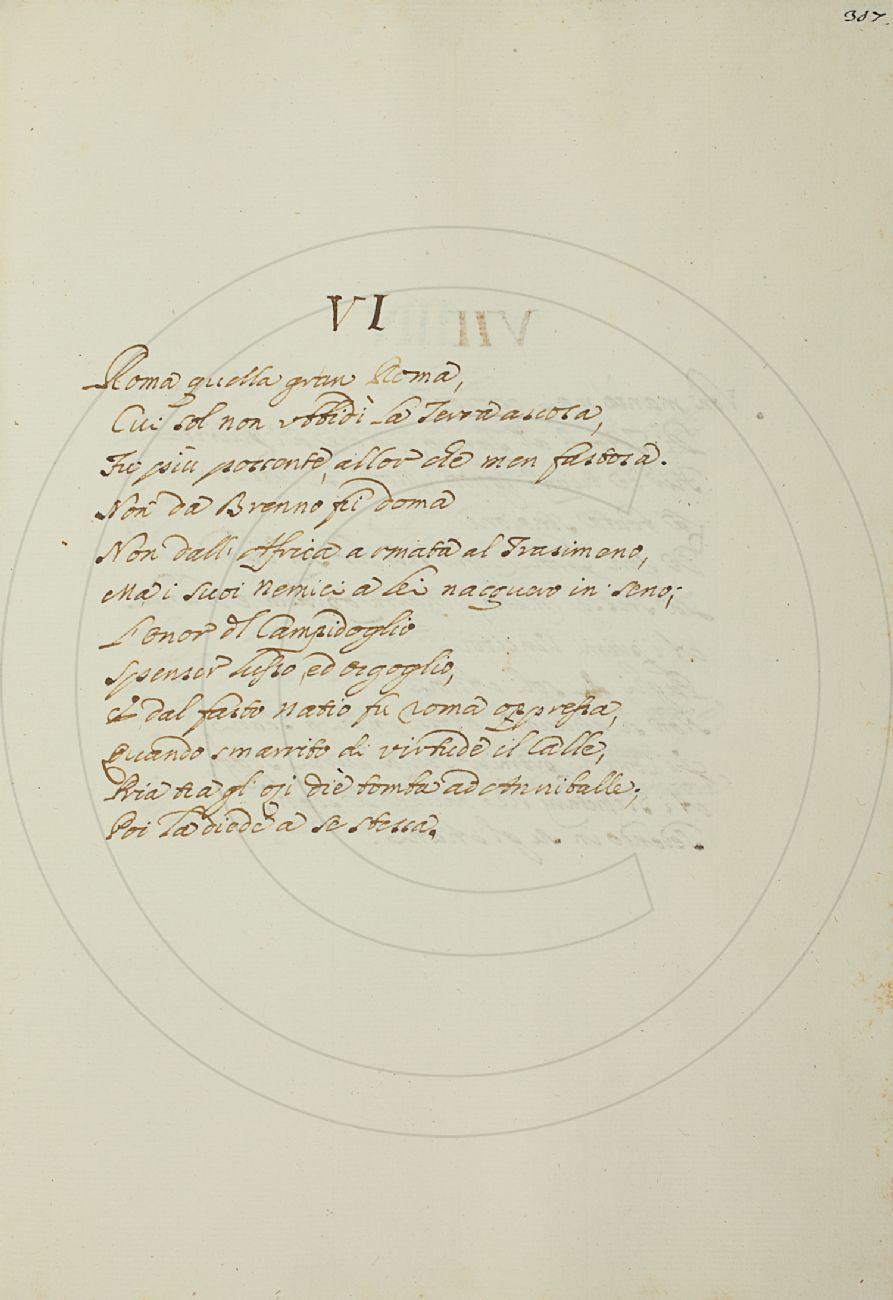 307
VI
Roma quella gran Roma,
Cui sol non ubbidì la Terra ascosa,
Fù più possente, allor che men fastosa.
Non da Brenno fù doma
Non dall'Africa armata al Trasimeno,
Mà i suoi Nemici a lei nacquero in seno;
L'onor dl Campidoglio
Spenser lusso, ed orgoglio,
E dal fasto natio fu roma oppressa,
Quando smarrito di virtude il Calle,
Pria tra gl'ozi diè tomba ad Anniballe;
Poi la diede a se stessa.